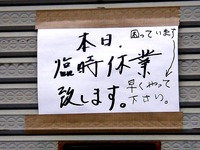 本日、
臨時休業
致します。
困っていた
早くやって
下さい。